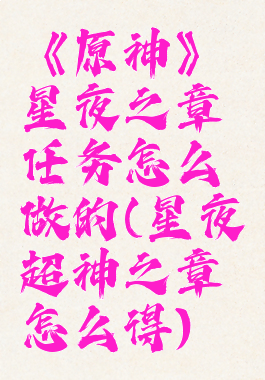 《原神》
星夜之章
任务怎么
做的(星夜
超神之章
怎么得)